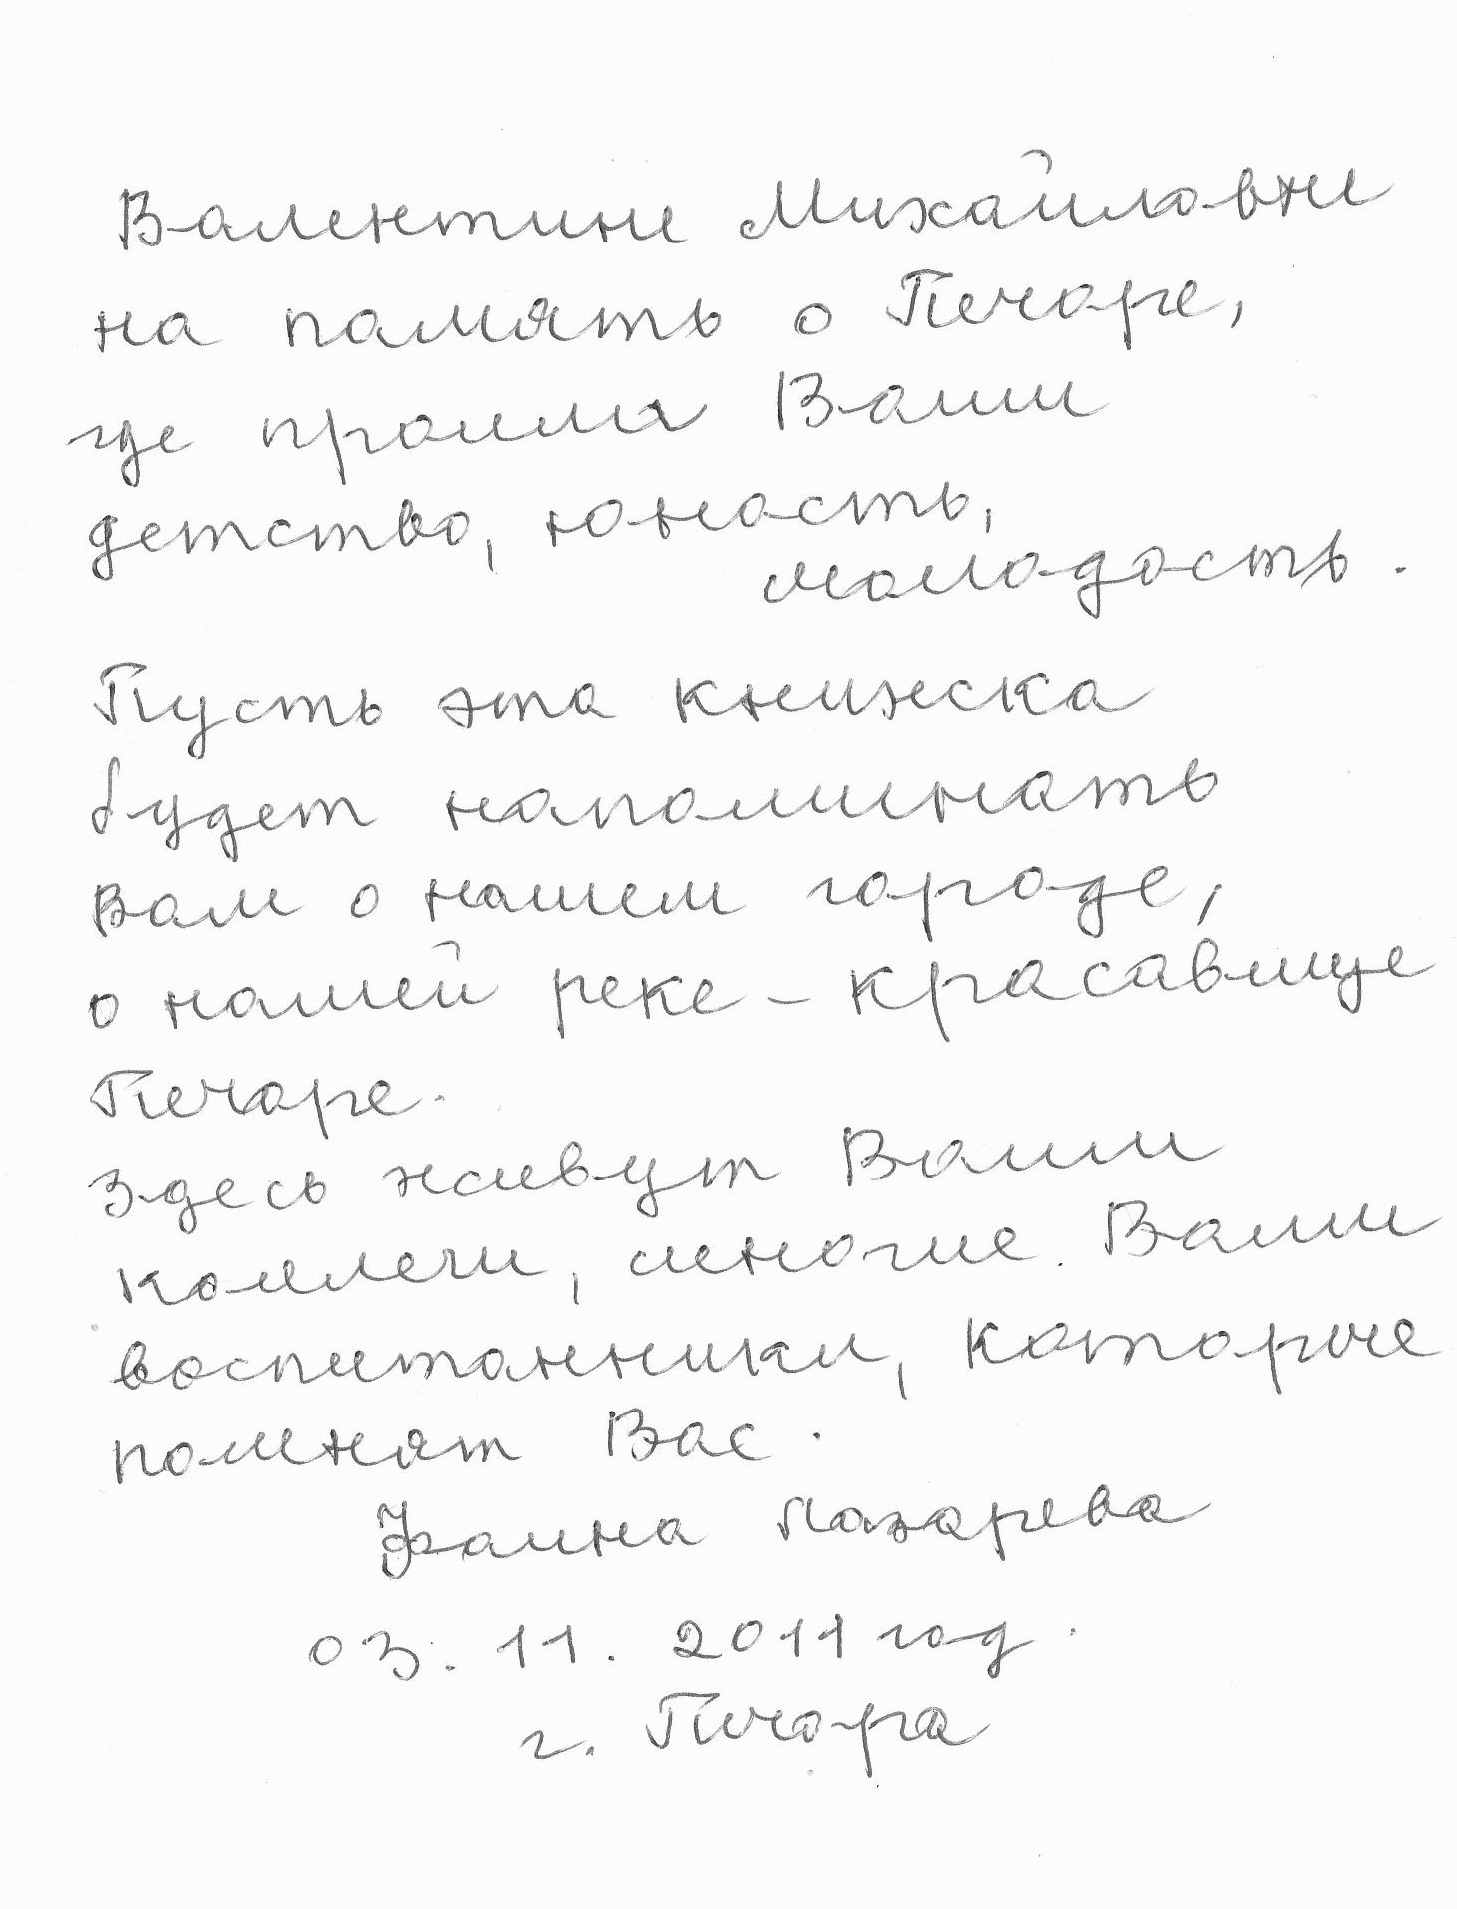 Валентине Михайловне
на память о Печоре,
где прошли Ваши
детство, юность,
молодость.
Пусть эта книжка
будет напоминать
Вам о нашем городе,
о нашей реке - красавице
Печоре.
Здесь живут Ваши
коллеги, многие Ваши
воспитанники, которые
помнят Вас.
Фаина Лазарева
03. 11. 2011 год.
г. Печора